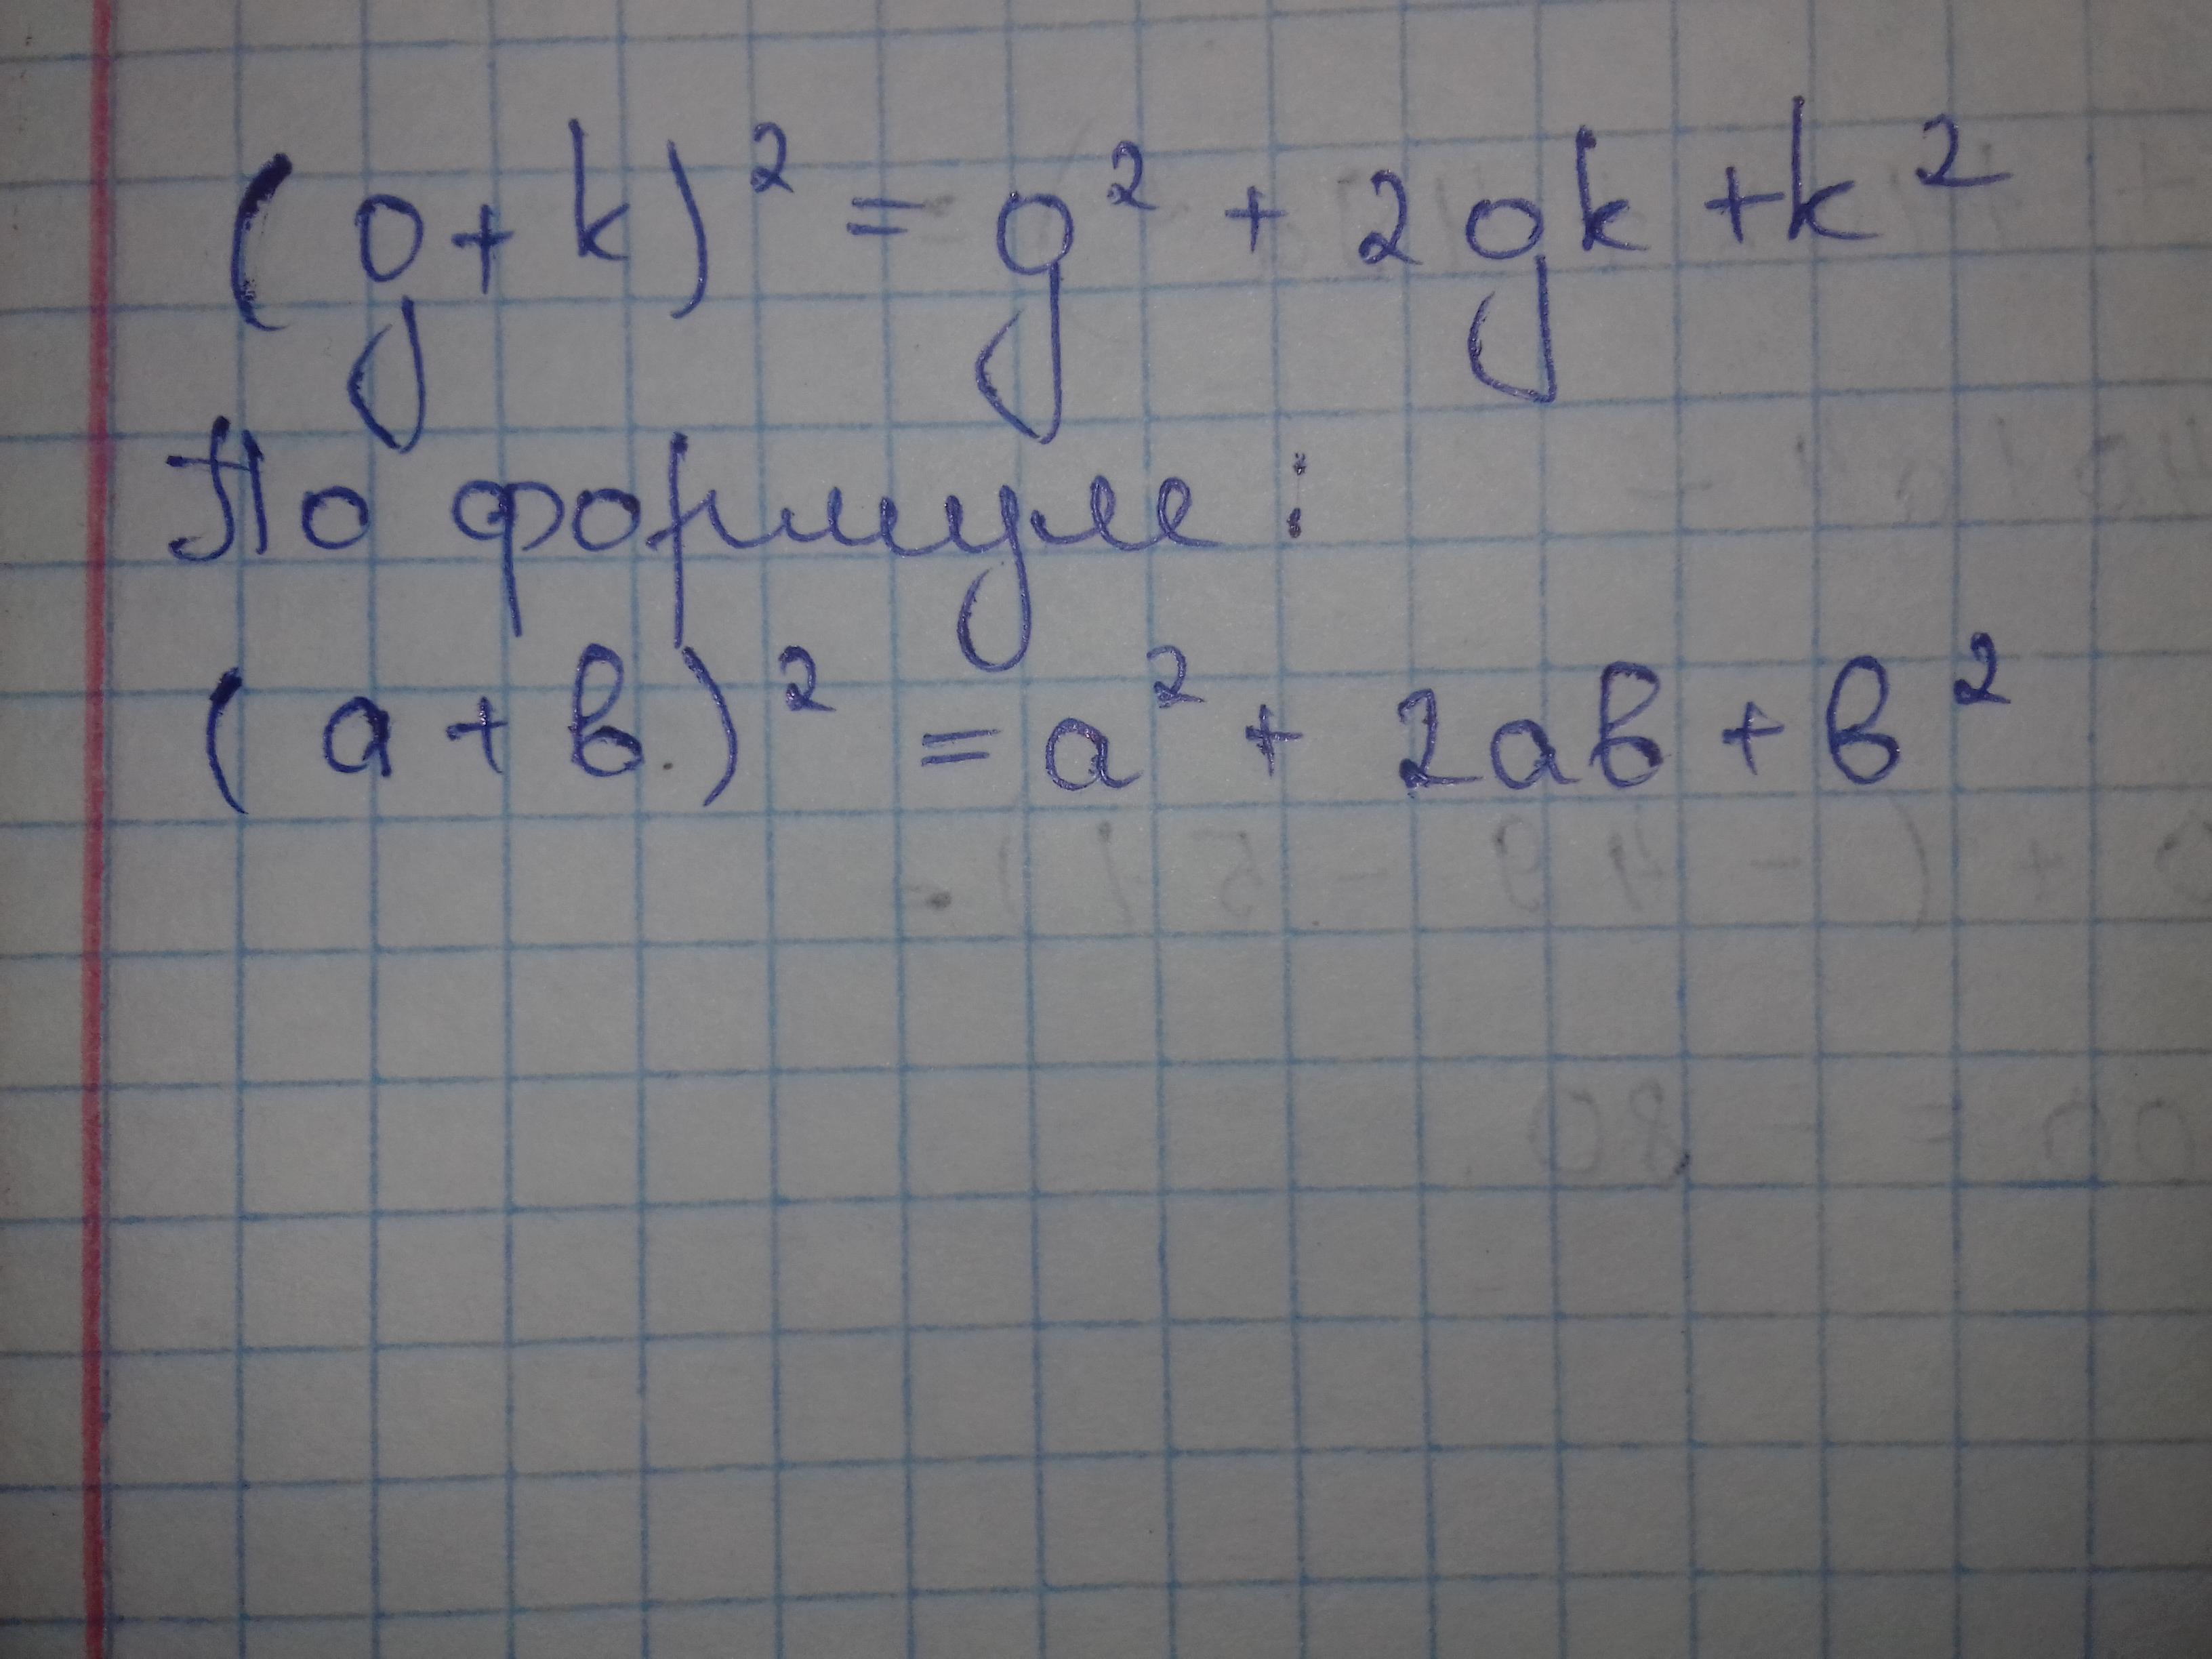 (g+k)² = g² + 2gk + k²
По формуле:
(а + в)² = а² + 2ав + в²